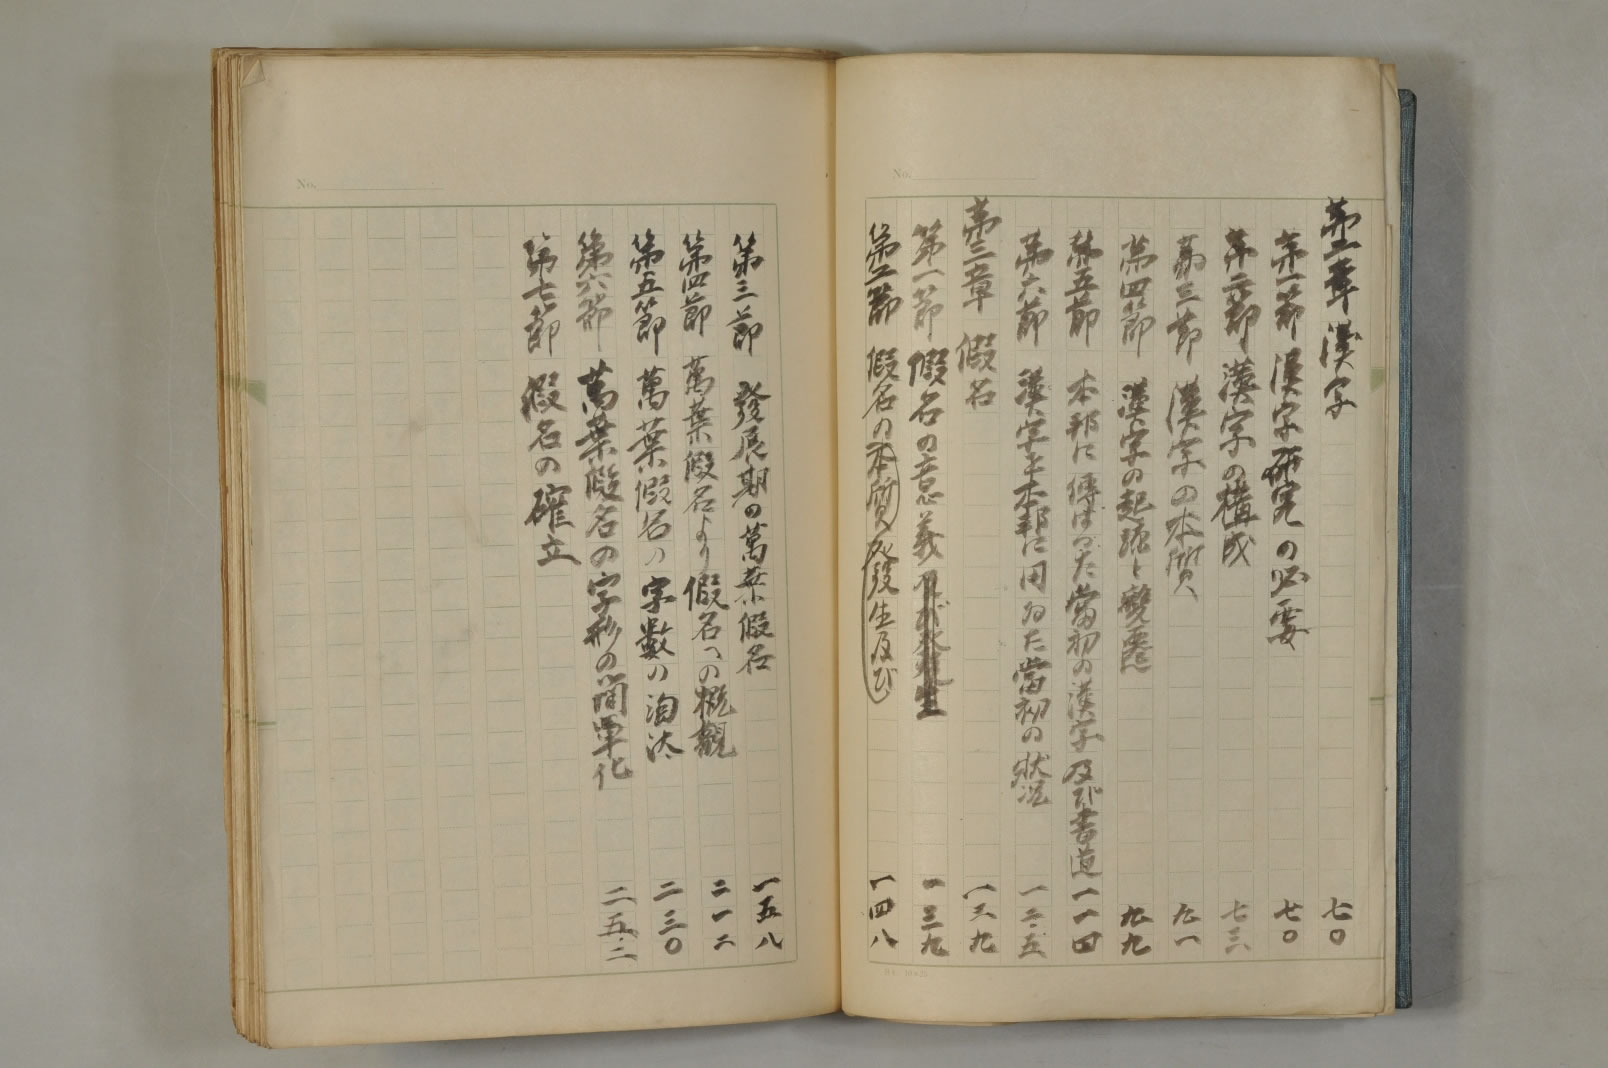 No.
第二章 漢字 七〇
第一節 漢字研究の必要 七〇
第二節 漢字の構成 七三
第三節 漢字の本質 九一
第四節 漢字の起源と變遷 九九
第五節 本邦に傳はつた當初の漢字及び書道 一一四
第六節 漢字を本邦に用ゐた當初の狀況 一二五
第三章 假名 一三九
第一節 假名の意義及び發生 一三九
第二節 假名の本質發生及び 一四八
No.
第三節 發展期の萬葉假名 一五八
第四節 萬葉假名より假名への概觀 二一二
第五節 萬葉假名の字數の淘汰 二三〇
第六節 萬葉假名の字形の簡單化 二五二
第七節 假名の確立